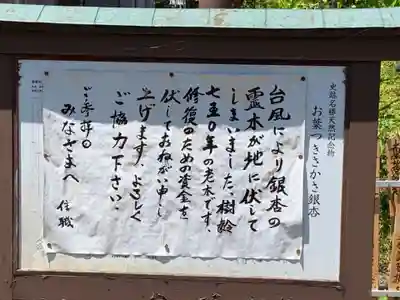 史跡名勝天然記念物
お葉つききかき銀杏
台風により銀杏の
霊木が地に伏して
しまいました、樹齢
七五〇年の老木です。
修復のための資金を
伏しておねがい申し
上げます よろしく
ご協力下さい。
みなさまへ
住職